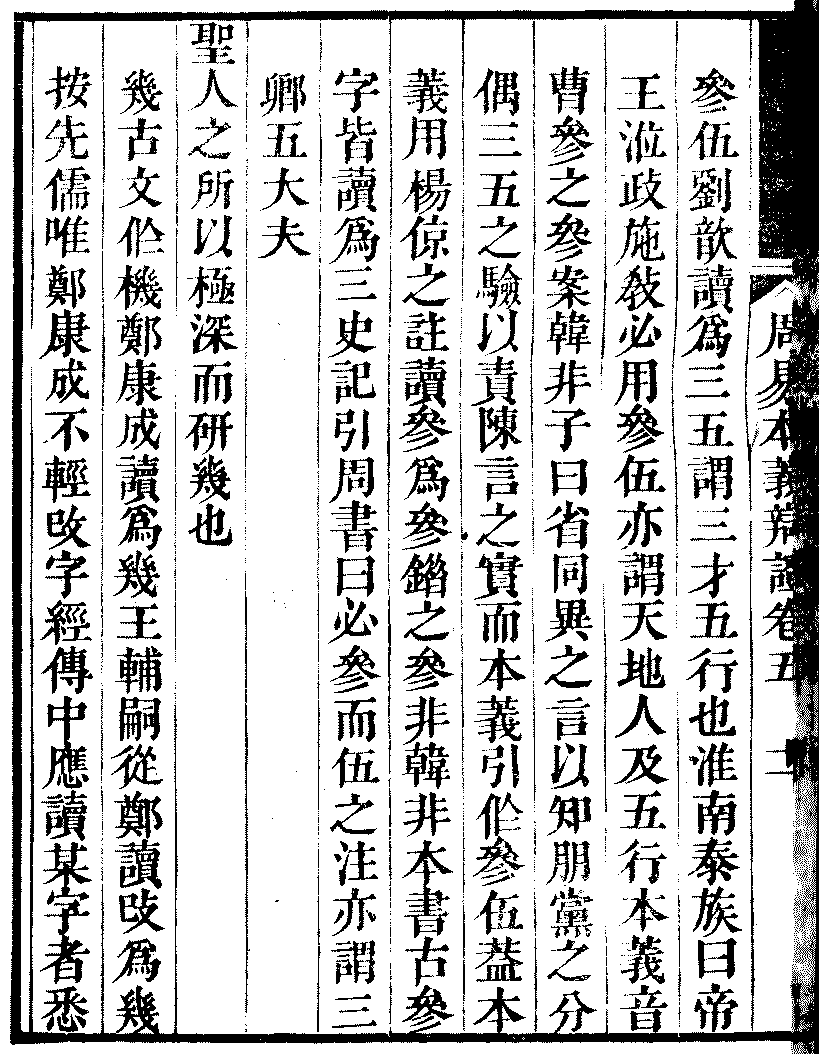 周易本義辯證卷五　二
參伍劉歆讀爲三五謂三才五行也淮南泰族曰帝
王涖政施敎必用參伍亦謂天地人及五行本義音
曹參之參案韓非子曰省同異之言以知朋黨之分
偶三五之驗以責陳言之實而本義引作參伍蓋本
義用楊倞之註讀參爲參錯之參非韓非本書古參
字皆讀爲三史記引周書曰必參而伍之注亦謂三
卿五大夫
聖人之所以極深而研幾也
幾古文作機鄭康成讀爲幾王輔嗣從鄭讀改爲幾
按先儒唯鄭康成不輕改字經傳中應讀某字者悉